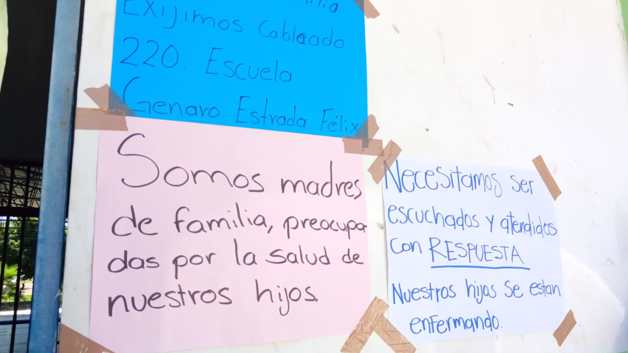 Exijimos Cableado
220. Escuela
Genaro Estrada Félix
Somos madres
de familia, preocupa
das por la salud de
nuestros hijos
Necesitamos ser
escuchados y atendidos
con RESPUESTA
Nuestros hijos se estan
enfermando.